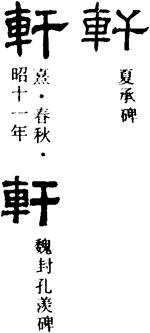 軒
夏承碑
軒
熹·春秋·
昭十一年
軒
魏封孔羨碑